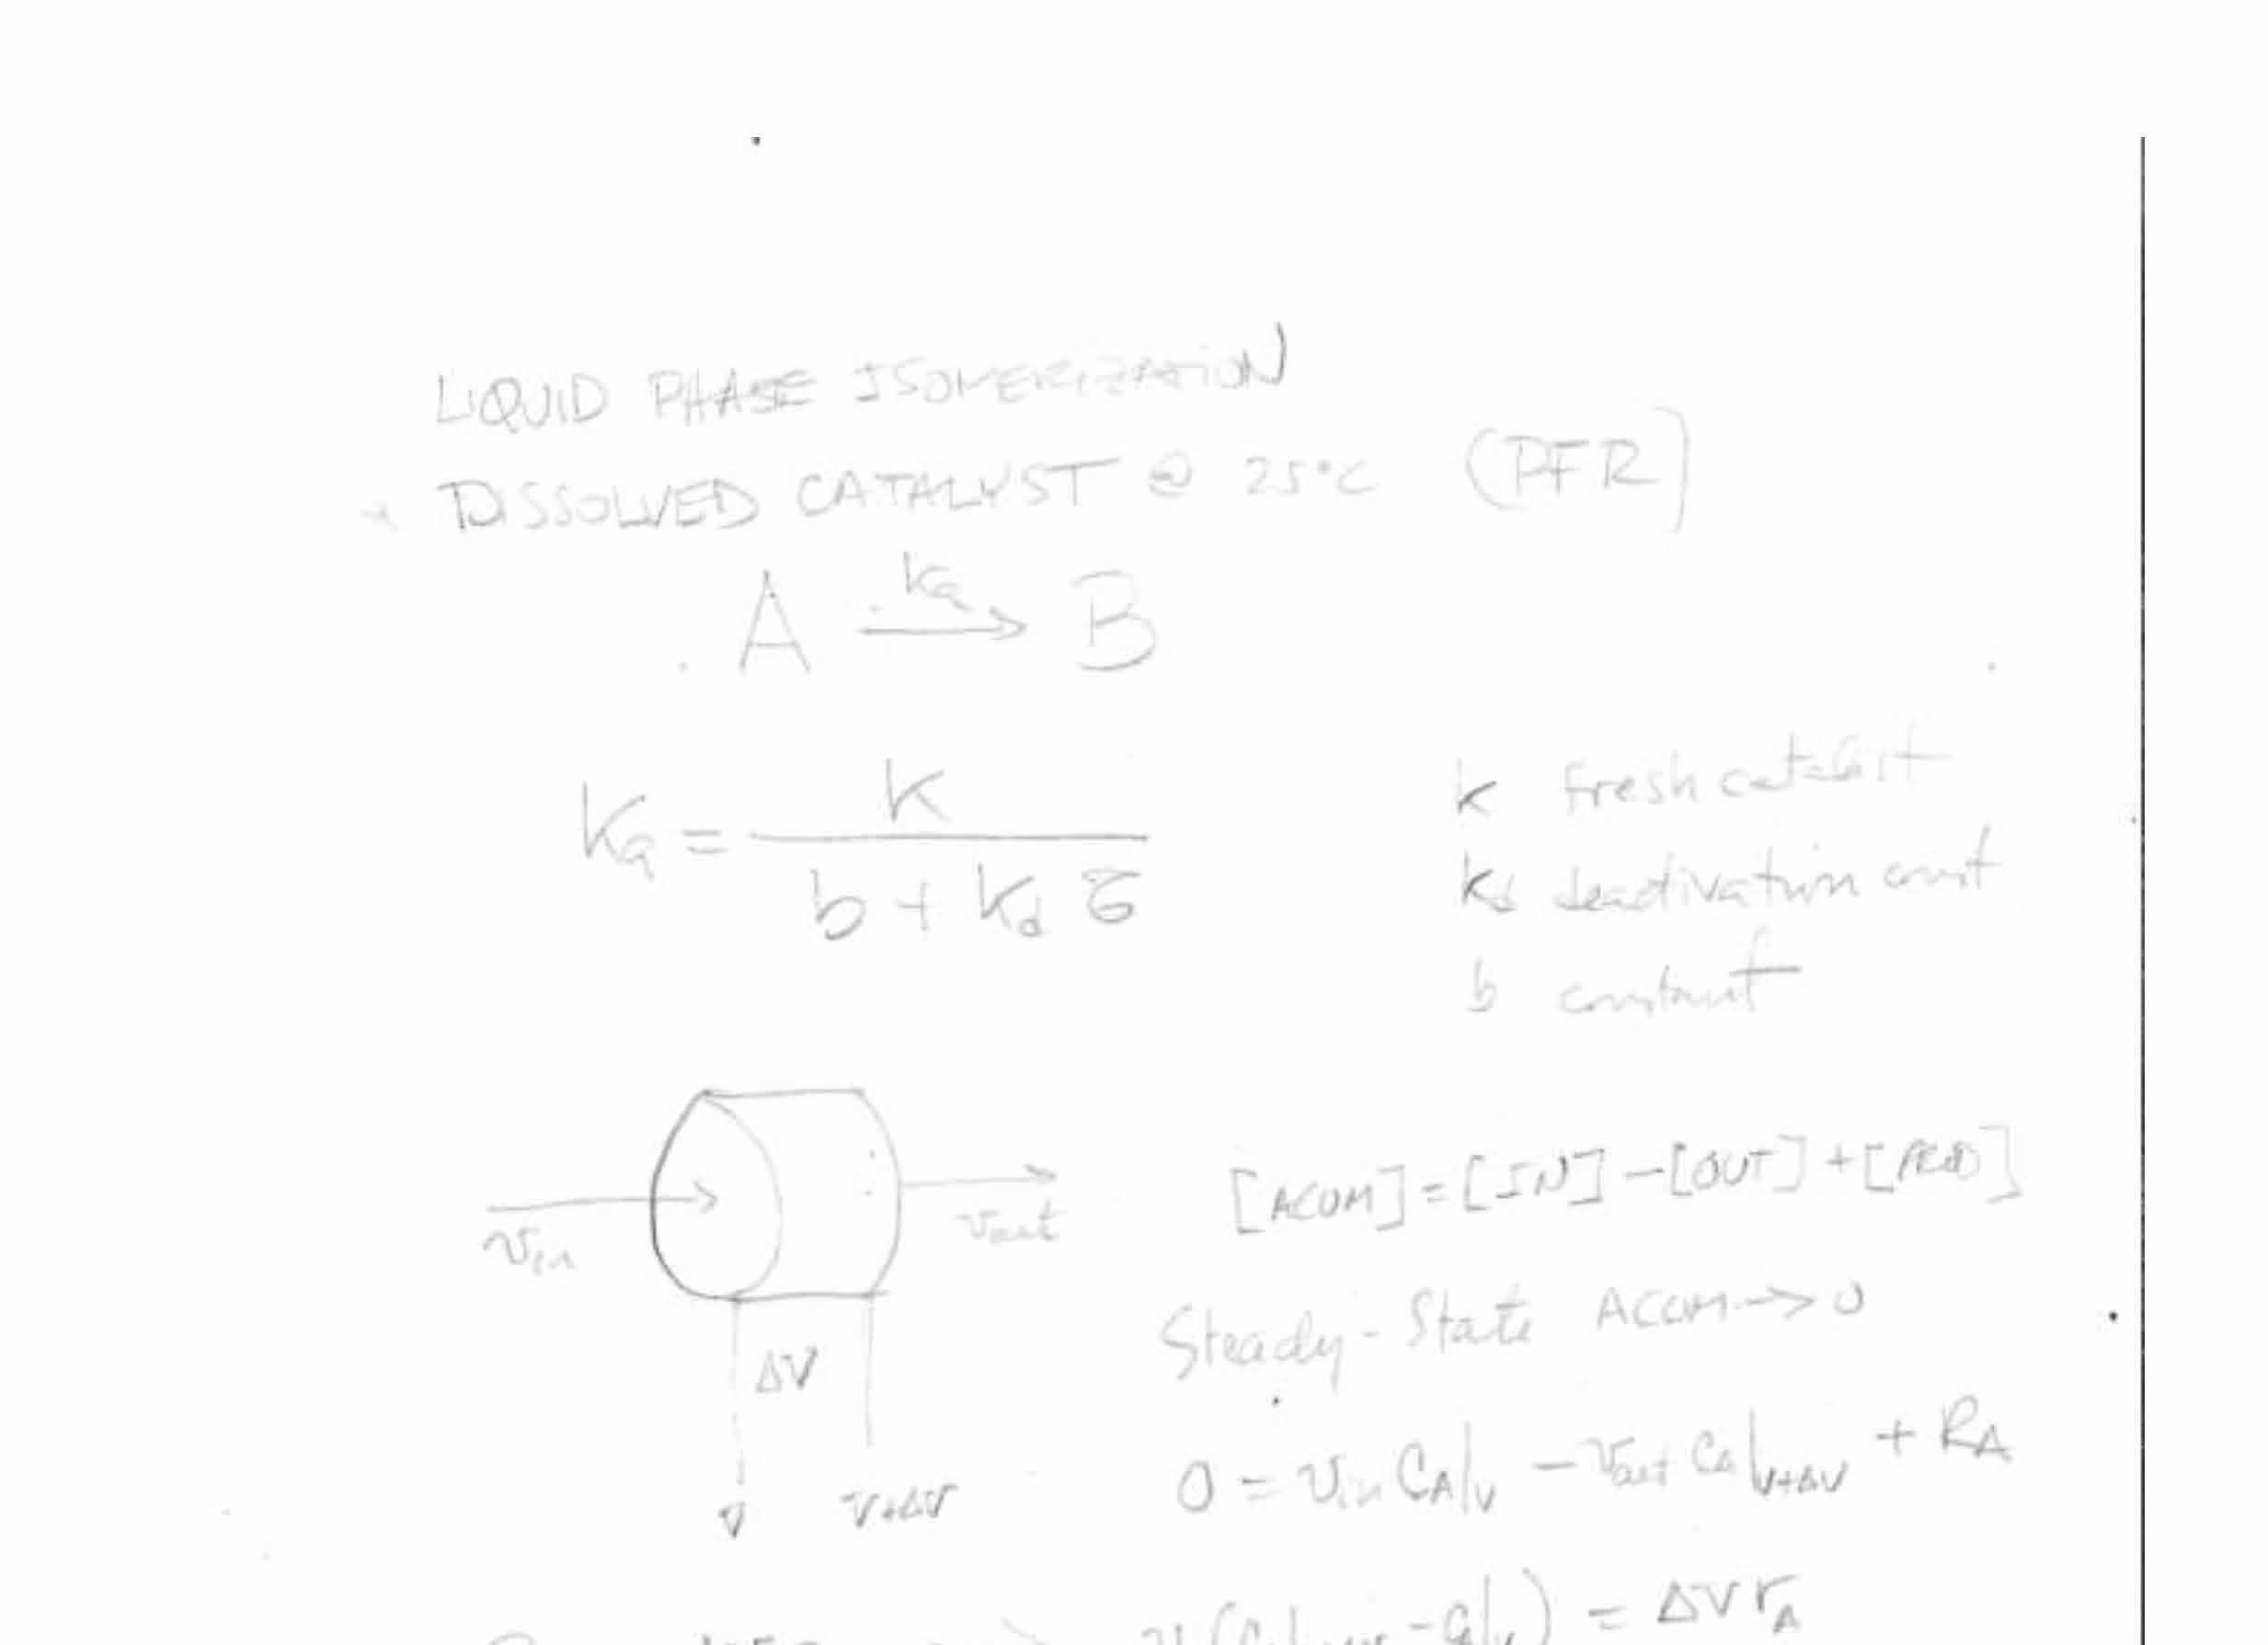 LIQUID PHASE ISOMERIZATION
DISSOLVED CATALYST @ 25°C (PFR)
A ka → B
ka = k / (b + kd τ)
k fresh catalist
kd deactivation const
b constant
vin
vout
[ACUM] = [IN] - [OUT] + [PROD]
Steady-State ACUM → 0
ΔV
V V+ΔV
0 = vin CA|V - vout CA|V+ΔV + RA
= ΔV rA